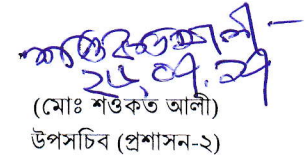 ২৬.০৭.
(মোঃ শওকত আলী)
উপসচিব (প্রশাসন-২)